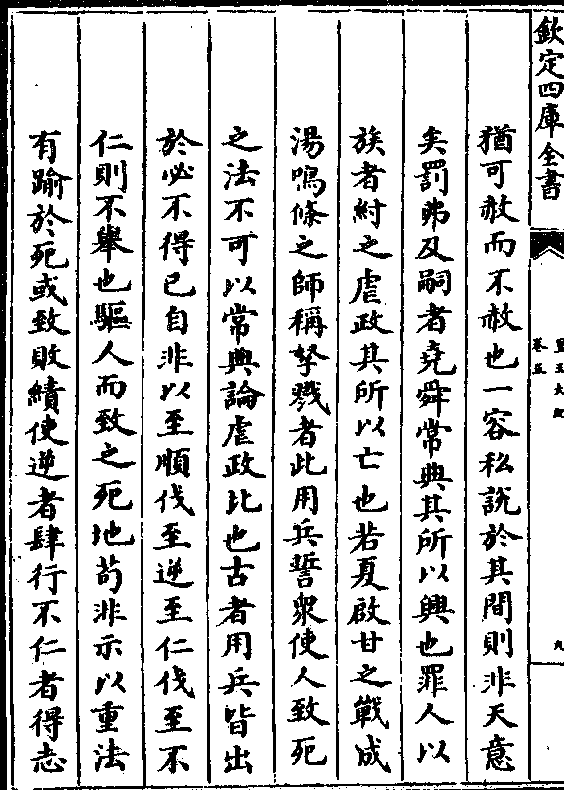 欽定四庫全書
皇王大紀
卷五
九
猶可赦而不赦也一容私說於其間則非天意
矣罰弗及嗣者堯舜常典其所以興也罪人以
族者紂之虐政其所以亡也若夏啟甘之戰成
湯鳴條之師稱孥戮者此用兵誓衆使人致死
之法不可以常典論虐政比也古者用兵皆出
於必不得已自非以至順伐至逆至仁伐至不
仁則不舉也驅人而致之死地苟非示以重法
有踰於死或致敗績使逆者肆行不仁者得志